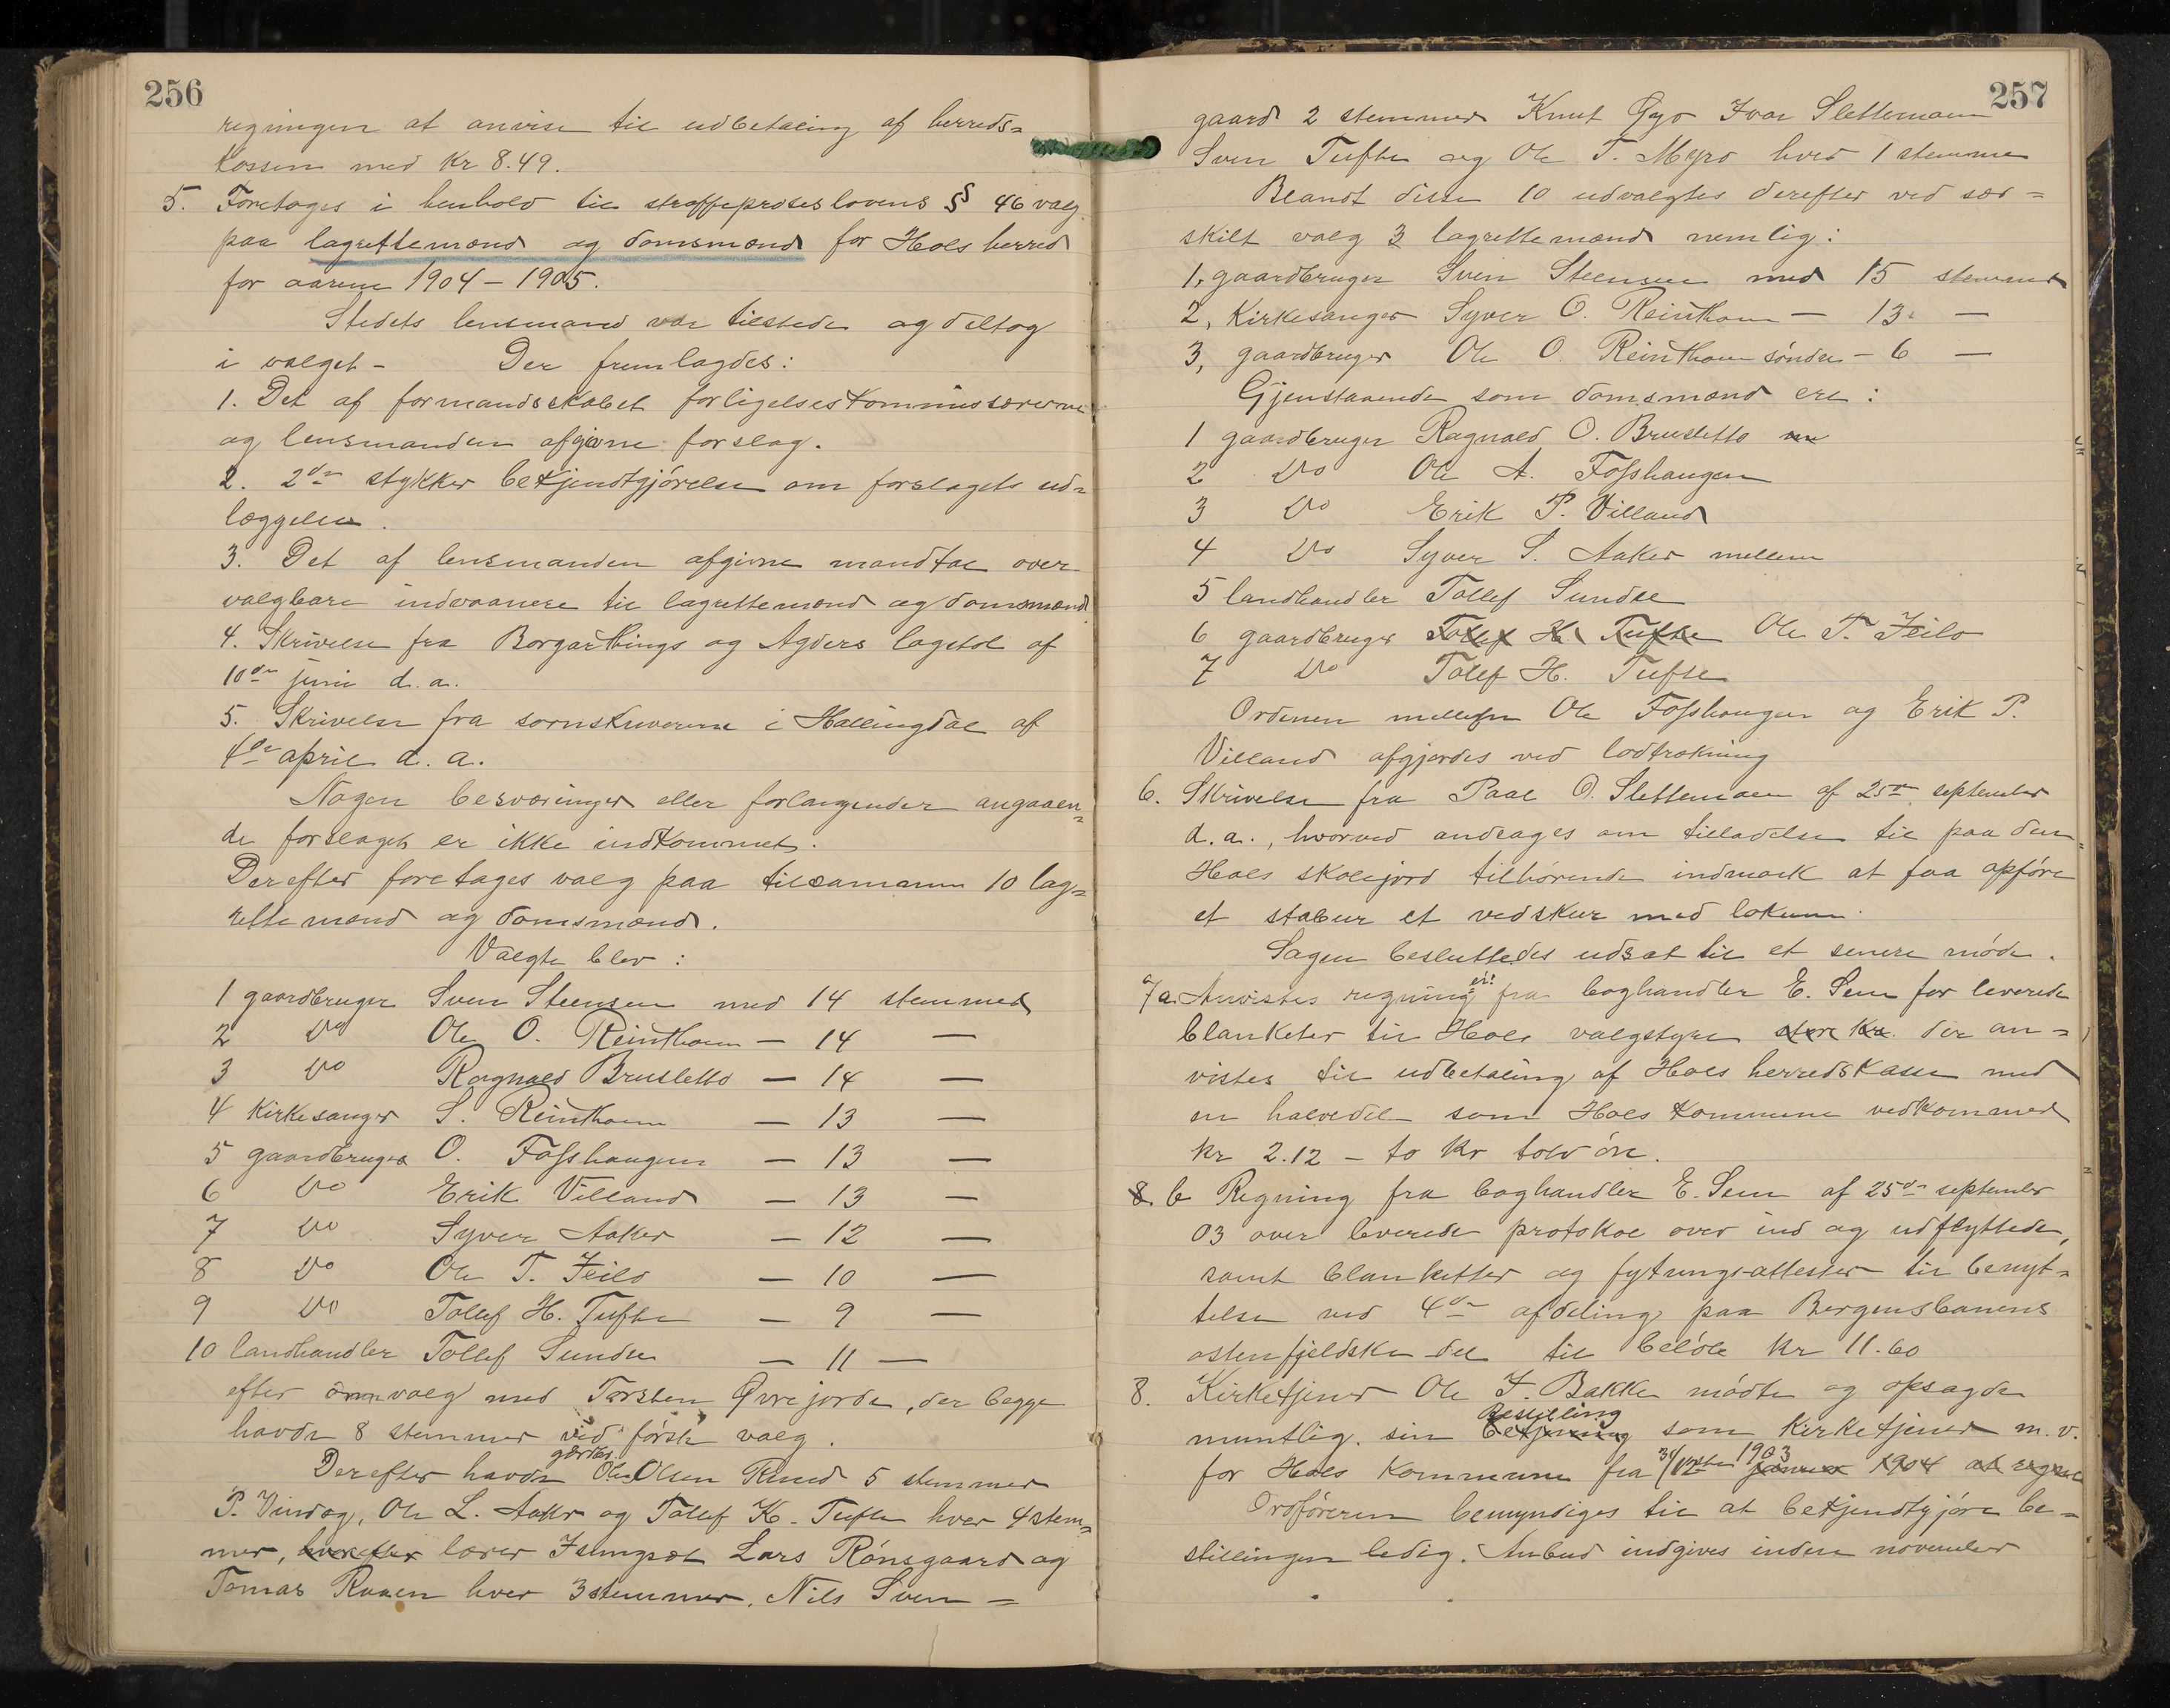 256
regningen at anvise til udbetaling af herreds=
kassen med Kr 8.49.
5. Foretages i henhold til straffeproseslovens § 46 valg
paa lagrettemænd og domsmænd for Hols herred
for aarene 1904 – 1905.
Stedets lensmand var tilstede og deltog
i valget – Der fremlagdes:
1. Det af formandsskabet forligelseskommissærerne
og lensmanden afgivne forslag.
2. 2de stykker bekjendtgjörelse om forslagets ud=
læggelse.
3. Det af lensmanden afgivne mandtal over
valgbare indvaanere til lagrettemænd og domsmænd
4. Skrivelse fra Borgarthings og Agders lagstol af
10de juni d.a.
5. Skrivelse fra sorenskriveren i Hallingdal af
4de april d.a.
Nogen besværinger eller forlangender angaaen=
de forslaget er ikke indkommet.
Derefter foretages valg paa tilsammen 10 lag=
rettemænd og domsmænd.
Valgte blev:
1 gaardbruger Sven Steensen med 14 stemmer
2 Do Ole O. Reinthon — 14 —
3 Do Ragnald Brusletto — 14 —
4 Kirkesanger S. Reinthon — 13 —
5 gaardbruger O. Fosshaugen — 13 —
6 Do Erik Villand — 13 —
7 Do Syver Aaker — 12 —
8 Do Ole T. Jeilo — 10 —
9 Do Tollef H. Tufte — 9 —
10 landhandler Tollef Sundre — 11 —
efter omvalg med Torsten Øvrejorde, der begge
havde 8 stemmer ved förste valg.
Derefter havde gardbr. Ole Olsen Rued 5 stemmer
P. Vindag, Ole L. Aaker og Tollef K. Tufte hver 4 stem=
mer, hvorefter lærer Isungset Lars Rönsgaard og
Tomas Raaen hver 3 stemmer, Nils Sven =
257
gaard 2 stemmer Knut Øyo Ivar Slettemoen
Sven Tufte og Ole T. Myro hver 1 stemme
Blandt disse 10 udvalgtes derefter ved sær=
skilt valg 3 lagrettemænd nemlig:
1, gaardbruger Sven Steensen med 15 stemmer
2, Kirkesanger Syver O. Reinthon — 13 —
3, gaardbruger Ole O. Reinthon söndre — 6 —
Gjenstaaende som domsmænd ere:
1 gaardbruger Ragnald O. Brusletto
2 Do Ole A. Fosshaugen
3 Do Erik P. Villand
4 Do Syver S. Aaker mellem
5 landhandler Tollef Sundre
6 gaardbruger Tolef H. Tufte Ole T. Jeilo
7 Do Tolef H. Tufte
Ordenen mellem Ole Fosshaugen og Erik P.
Villand afgjordes ved lodtrækning
6. Skrivelse fra Paal O. Slettemoen af 25de september
d.a., hvorved andrages om tilladelse til paa den
Hols skolejord tilhørende indmark at faa opföre
et stabur et vedskur med lokum.
Sagen besluttedes udsat til et senere möde.
7a Anvistes regning fra boghandler E. Sem for leverede
blanketer til Hols valgstyre der an=
vistes til udbetaling af Hols herredskasse med
en halvedel som Hols kommune vedkommed
kr 2.12 – to kr tolv öre.
8 b Regning fra boghandler E. Sem af 25de september
03 over leverede protokol over ind og udflyttede,
samt blanketter og flytningsattester til benyt=
telse ved 4de afdeling paa Bergensbanens
östenfjeldske del til belöb kr 11.60
8. Kirketjener Ole T. Bakke mödte og opsagde
muntlig sin betjening Bestilling som Kirketjener m.v.
for Hols kommune fra 31/12 1903 januar 1904 at regne
Ordföreren bemyndiges til at bekjendtgjöre be=
stillingen ledig. Anbud indgives inden november